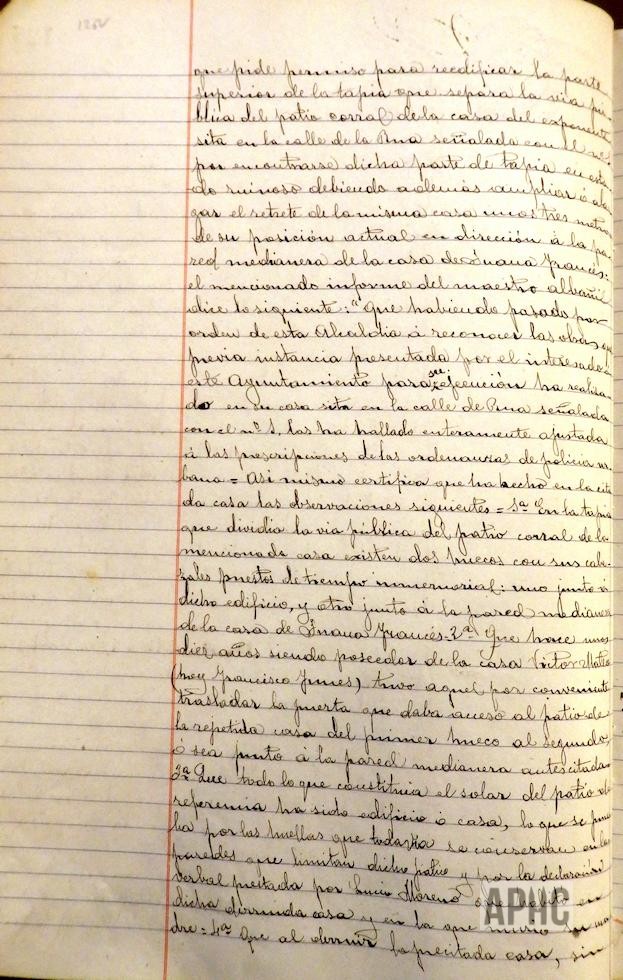 que pide permiso para reedificar la parte
superior de la tapia que separa la via pú-
blica del patio corral de la casa del exponente
sita en la calle de la Rua señalada con el nº 1.
por encontrarse dicha parte de tapia en esta-
do ruinoso debiendo además ampliar ó alar-
gar el retrete de la misma casa unos tres metros
de su posición actual en dirección á la pa-
red medianera de la casa de Juana Francés:
el mencionado informe del maestro albañil
dice lo siguiente: "Que habiendo pasado por
orden de esta Alcaldia á reconocer las obras que
previa instancia presentada por el interesado á
este Ayuntamiento para su ejecución ha realiza-
do en su casa sita en la calle de Rua señalada
con el nº 1, las ha hallado enteramente ajustada
á las prescripciones de las ordenanzas de policia ur-
bana = Asi mismo certifica que ha hecho en la cita-
da casa las observaciones siguientes = 1ª En la tapia
que dividia la via pública del patio corral de la
mencionada casa existen dos huecos con sus cabe-
zales puestos de tiempo inmemorial: uno junto á
dicho edificio, y otro junto á la pared medianera
de la casa de Juana Francés = 2ª Que hace unos
diez años siendo poseedor de la casa Victor Mateo
(hoy Francisco Junes) tuvo aquel por conveniente
trasladar la puerta que daba acceso al patio de
la repetida casa del primer hueco al segundo,
ó sea junto á la pared medianera antescitada
3ª Que todo lo que constituia el solar del patio de
referencia ha sido edificio ó casa, lo que se prue-
ba por las huellas que todavia se conservan en las
paredes que limitan dicho patio y por la declaración
verbal prestada por Lucio Moreno que habitó en
dicha derruida casa y en la que murió su ma-
dre = 4ª Que al derruir la precitada casa, sin
APHC